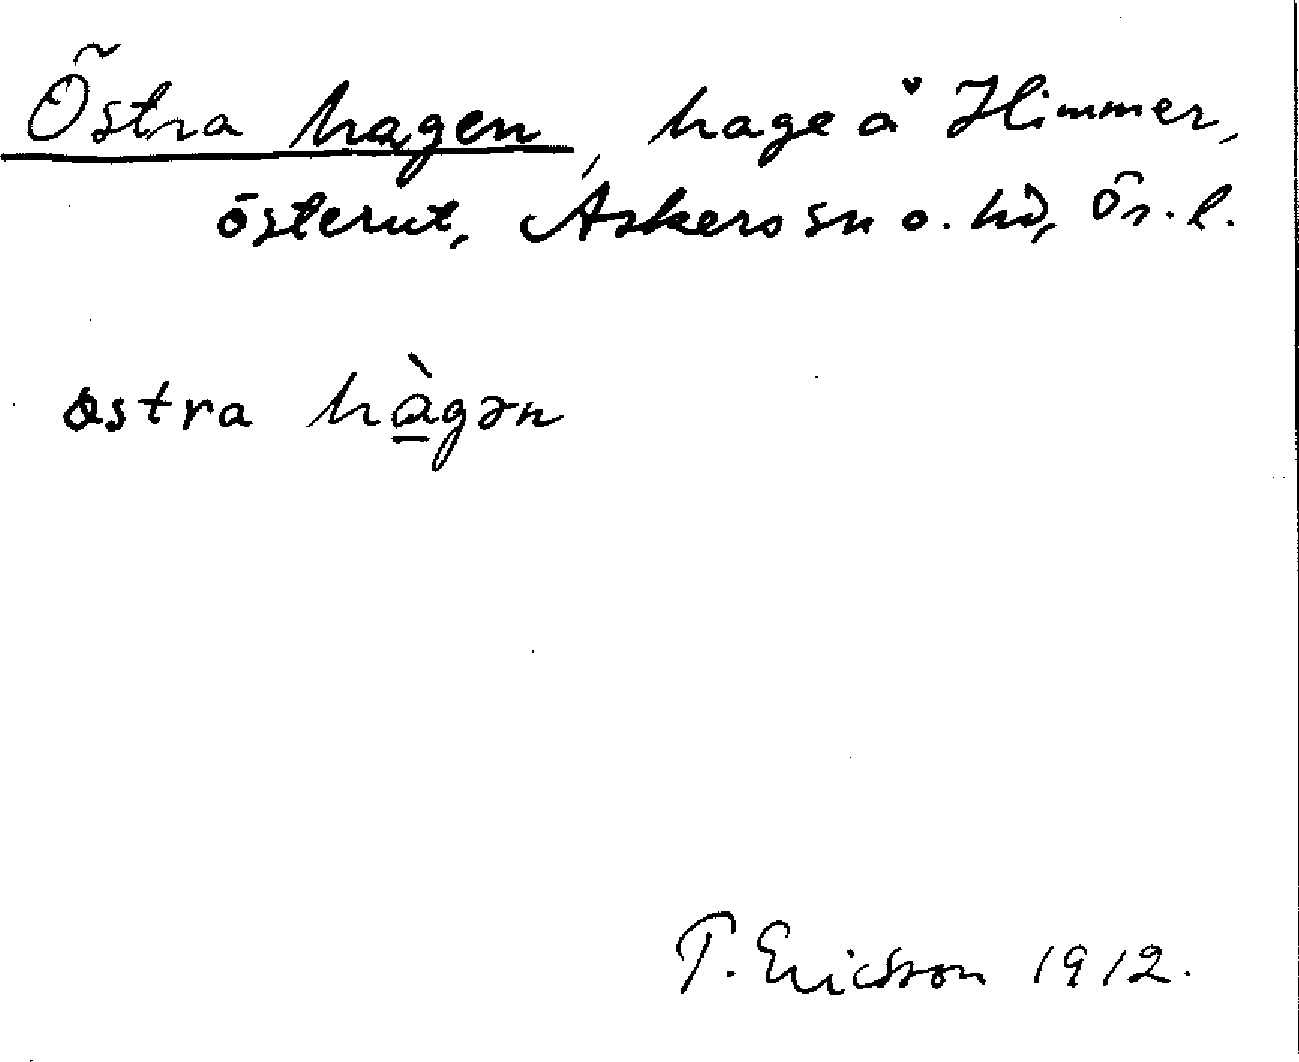 Östra hagen, hage å Himmer,
österut, Askers sn o. hd, Ör. l.
østra hàgən
T. Ericsson 1912.